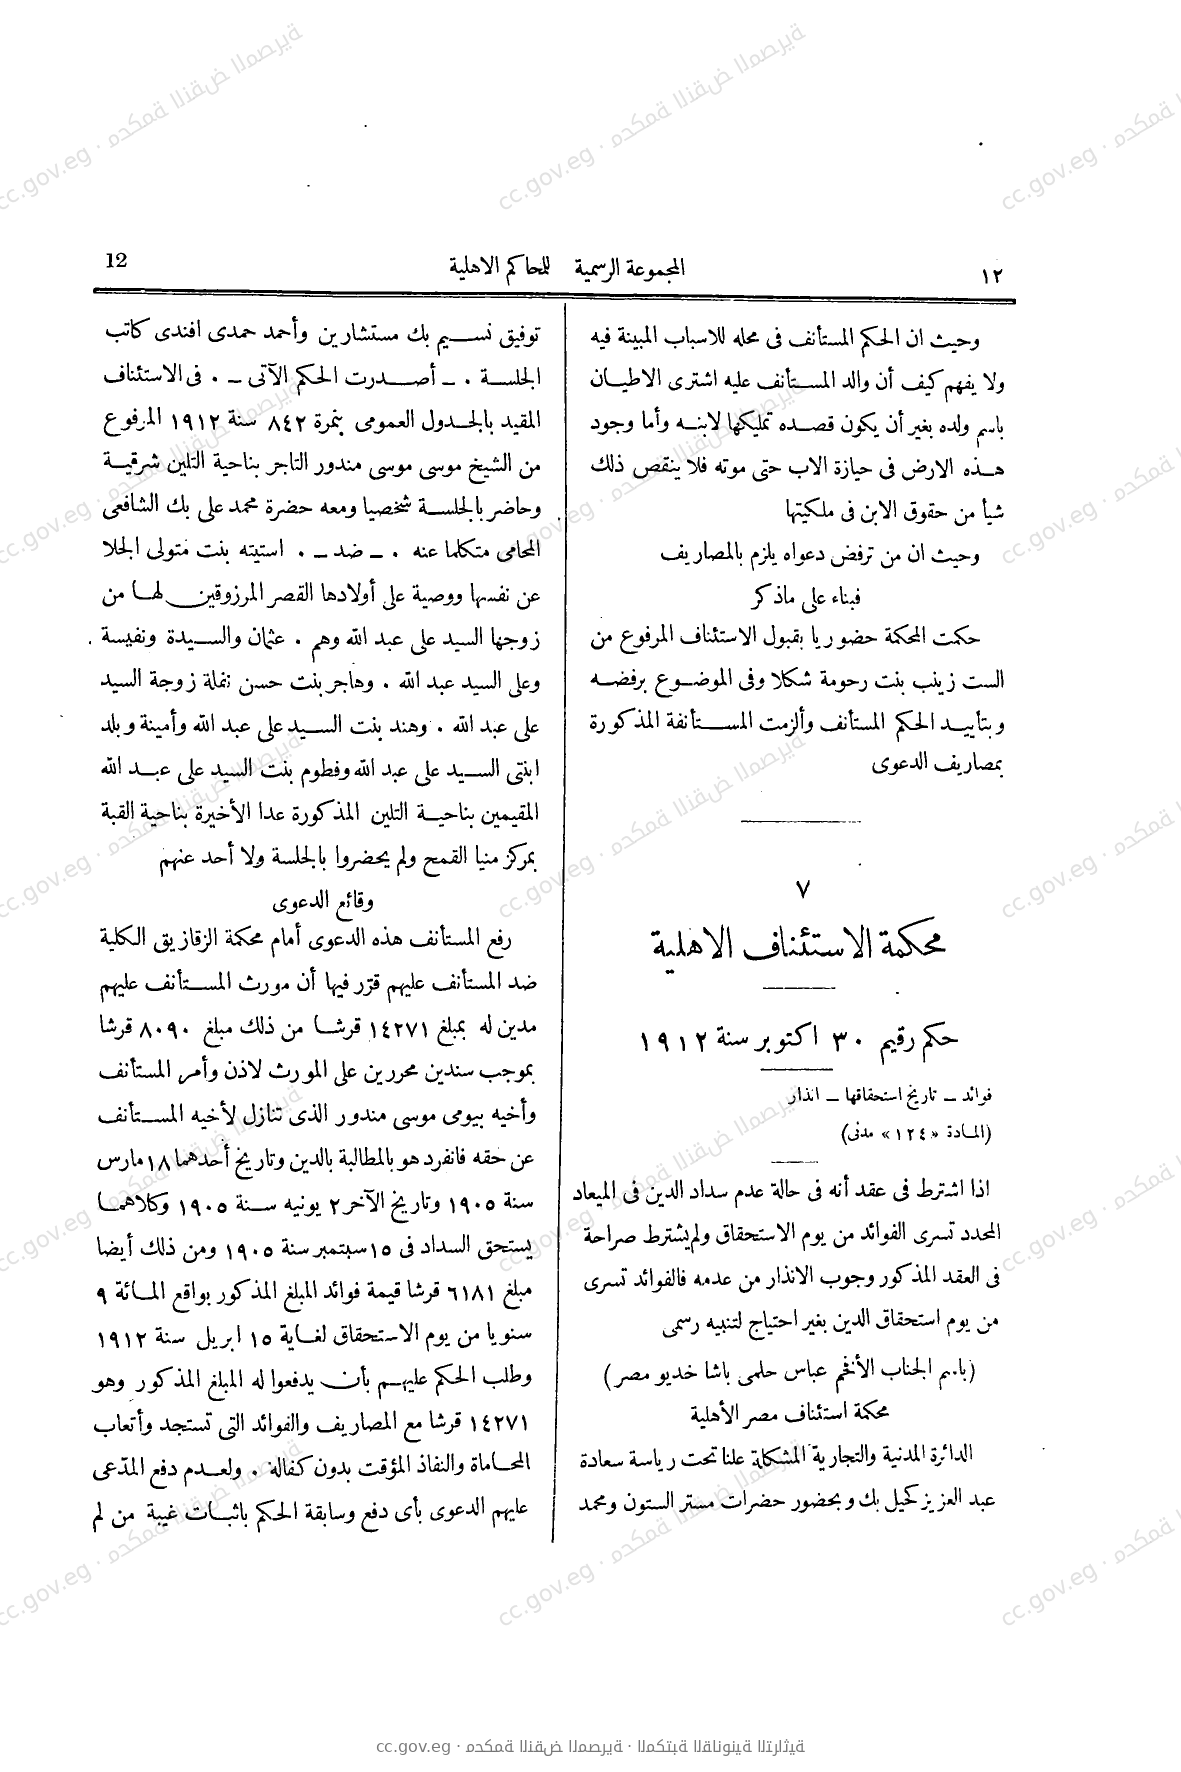 ١٢
المجموعة الرسمية للمحاكم الاهلية
12
وحيث ان الحكم المستأنف فى محله للاسباب المبينة فيه
ولا يفهم كيف أن والد المستأنف عليه اشترى الاطيان
باسم ولده بغير أن يكون قصده تمليكها لابنه وأما وجود
هذه الارض فى حيازة الاب حتى موته فلا ينقص ذلك
شيأ من حقوق الابن فى ملكيتها
وحيث ان من ترفض دعواه يلزم بالمصاريف
فبناء على ماذكر
حكمت المحكمة حضوريا بقبول الاستئناف المرفوع من
الست زينب بنت رحومة شكلا وفى الموضوع برفضه
وبتأييد الحكم المستأنف وألزمت المستأنفة المذكورة
بمصاريف الدعوى
٧
محكمة الاستئناف الاهلية
حكم رقيم ٣٠ اكتوبر سنة ١٩١٢
فوائد – تاريخ استحقاقها – انذار
(المادة «١٢٤» مدنى)
اذا اشترط فى عقد أنه فى حالة عدم سداد الدين فى الميعاد
المحدد تسرى الفوائد من يوم الاستحقاق ولم يشترط صراحة
فى العقد المذكور وجوب الانذار من عدمه فالفوائد تسرى
من يوم استحقاق الدين بغير احتياج لتنبيه رسمى
(باسم الجناب الأفخم عباس حلمى باشا خديو مصر)
محكمة استئناف مصر الأهلية
الدائرة المدنية والتجارية المشكلة علنا تحت رياسة سعادة
عبد العزيز كحيل بك وبحضور حضرات مستر الستون ومحمد
توفيق نسيم بك مستشارين وأحمد حمدى افندى كاتب
الجلسة . – أصدرت الحكم الآتى – . فى الاستئناف
المقيد بالجدول العمومى بنمرة ٨٤٢ سنة ١٩١٢ المرفوع
من الشيخ موسى موسى مندور التاجر بناحية التلين شرقية
وحاضر بالجلسة شخصيا ومعه حضرة محمد على بك الشافعى
المحامى متكلما عنه . – ضد – . استيته بنت متولى الجلا
عن نفسها ووصية على أولادها القصر المرزوقين لها من
زوجها السيد على عبد الله وهم . عثمان والسيدة ونفيسة
وعلى السيد عبد الله . وهاجر بنت حسن نملة زوجة السيد
على عبد الله . وهند بنت السيد على عبد الله وأمينة وبلد
ابنتى السيد على عبد الله وفطوم بنت السيد على عبد الله
المقيمين بناحية التلين المذكورة عدا الأخيرة بناحية القبة
بمركز منيا القمح ولم يحضروا بالجلسة ولا أحد عنهم
وقائع الدعوى
رفع المستأنف هذه الدعوى أمام محكمة الزقازيق الكلية
ضد المستأنف عليهم قرّر فيها أن مورث المستأنف عليهم
مدين له بمبلغ ١٤٢٧١ قرشا من ذلك مبلغ ٨٠٩٠ قرشا
بموجب سندين محررين على المورث لاذن وأمر المستأنف
وأخيه بيومى موسى مندور الذى تنازل لأخيه المستأنف
عن حقه فانفرد هو بالمطالبة بالدين وتاريخ أحدهما ١٨ مارس
سنة ١٩٠٥ وتاريخ الآخر ٢ يونيه سنة ١٩٠٥ وكلاهما
يستحق السداد فى ١٥ سبتمبر سنة ١٩٠٥ ومن ذلك أيضا
مبلغ ٦١٨١ قرشا قيمة فوائد المبلغ المذكور بواقع المائة ٩
سنويا من يوم الاستحقاق لغاية ١٥ ابريل سنة ١٩١٢
وطلب الحكم عليهم بأن يدفعوا له المبلغ المذكور وهو
١٤٢٧١ قرشا مع المصاريف والفوائد التى تستجد وأتعاب
المحاماة والنفاذ المؤقت بدون كفالة . ولعدم دفع المدّعى
عليهم الدعوى بأى دفع وسابقة الحكم باثبات غيبة من لم
cc.gov.eg · محكمة النقض المصرية · المكتبة القانونية التراثية